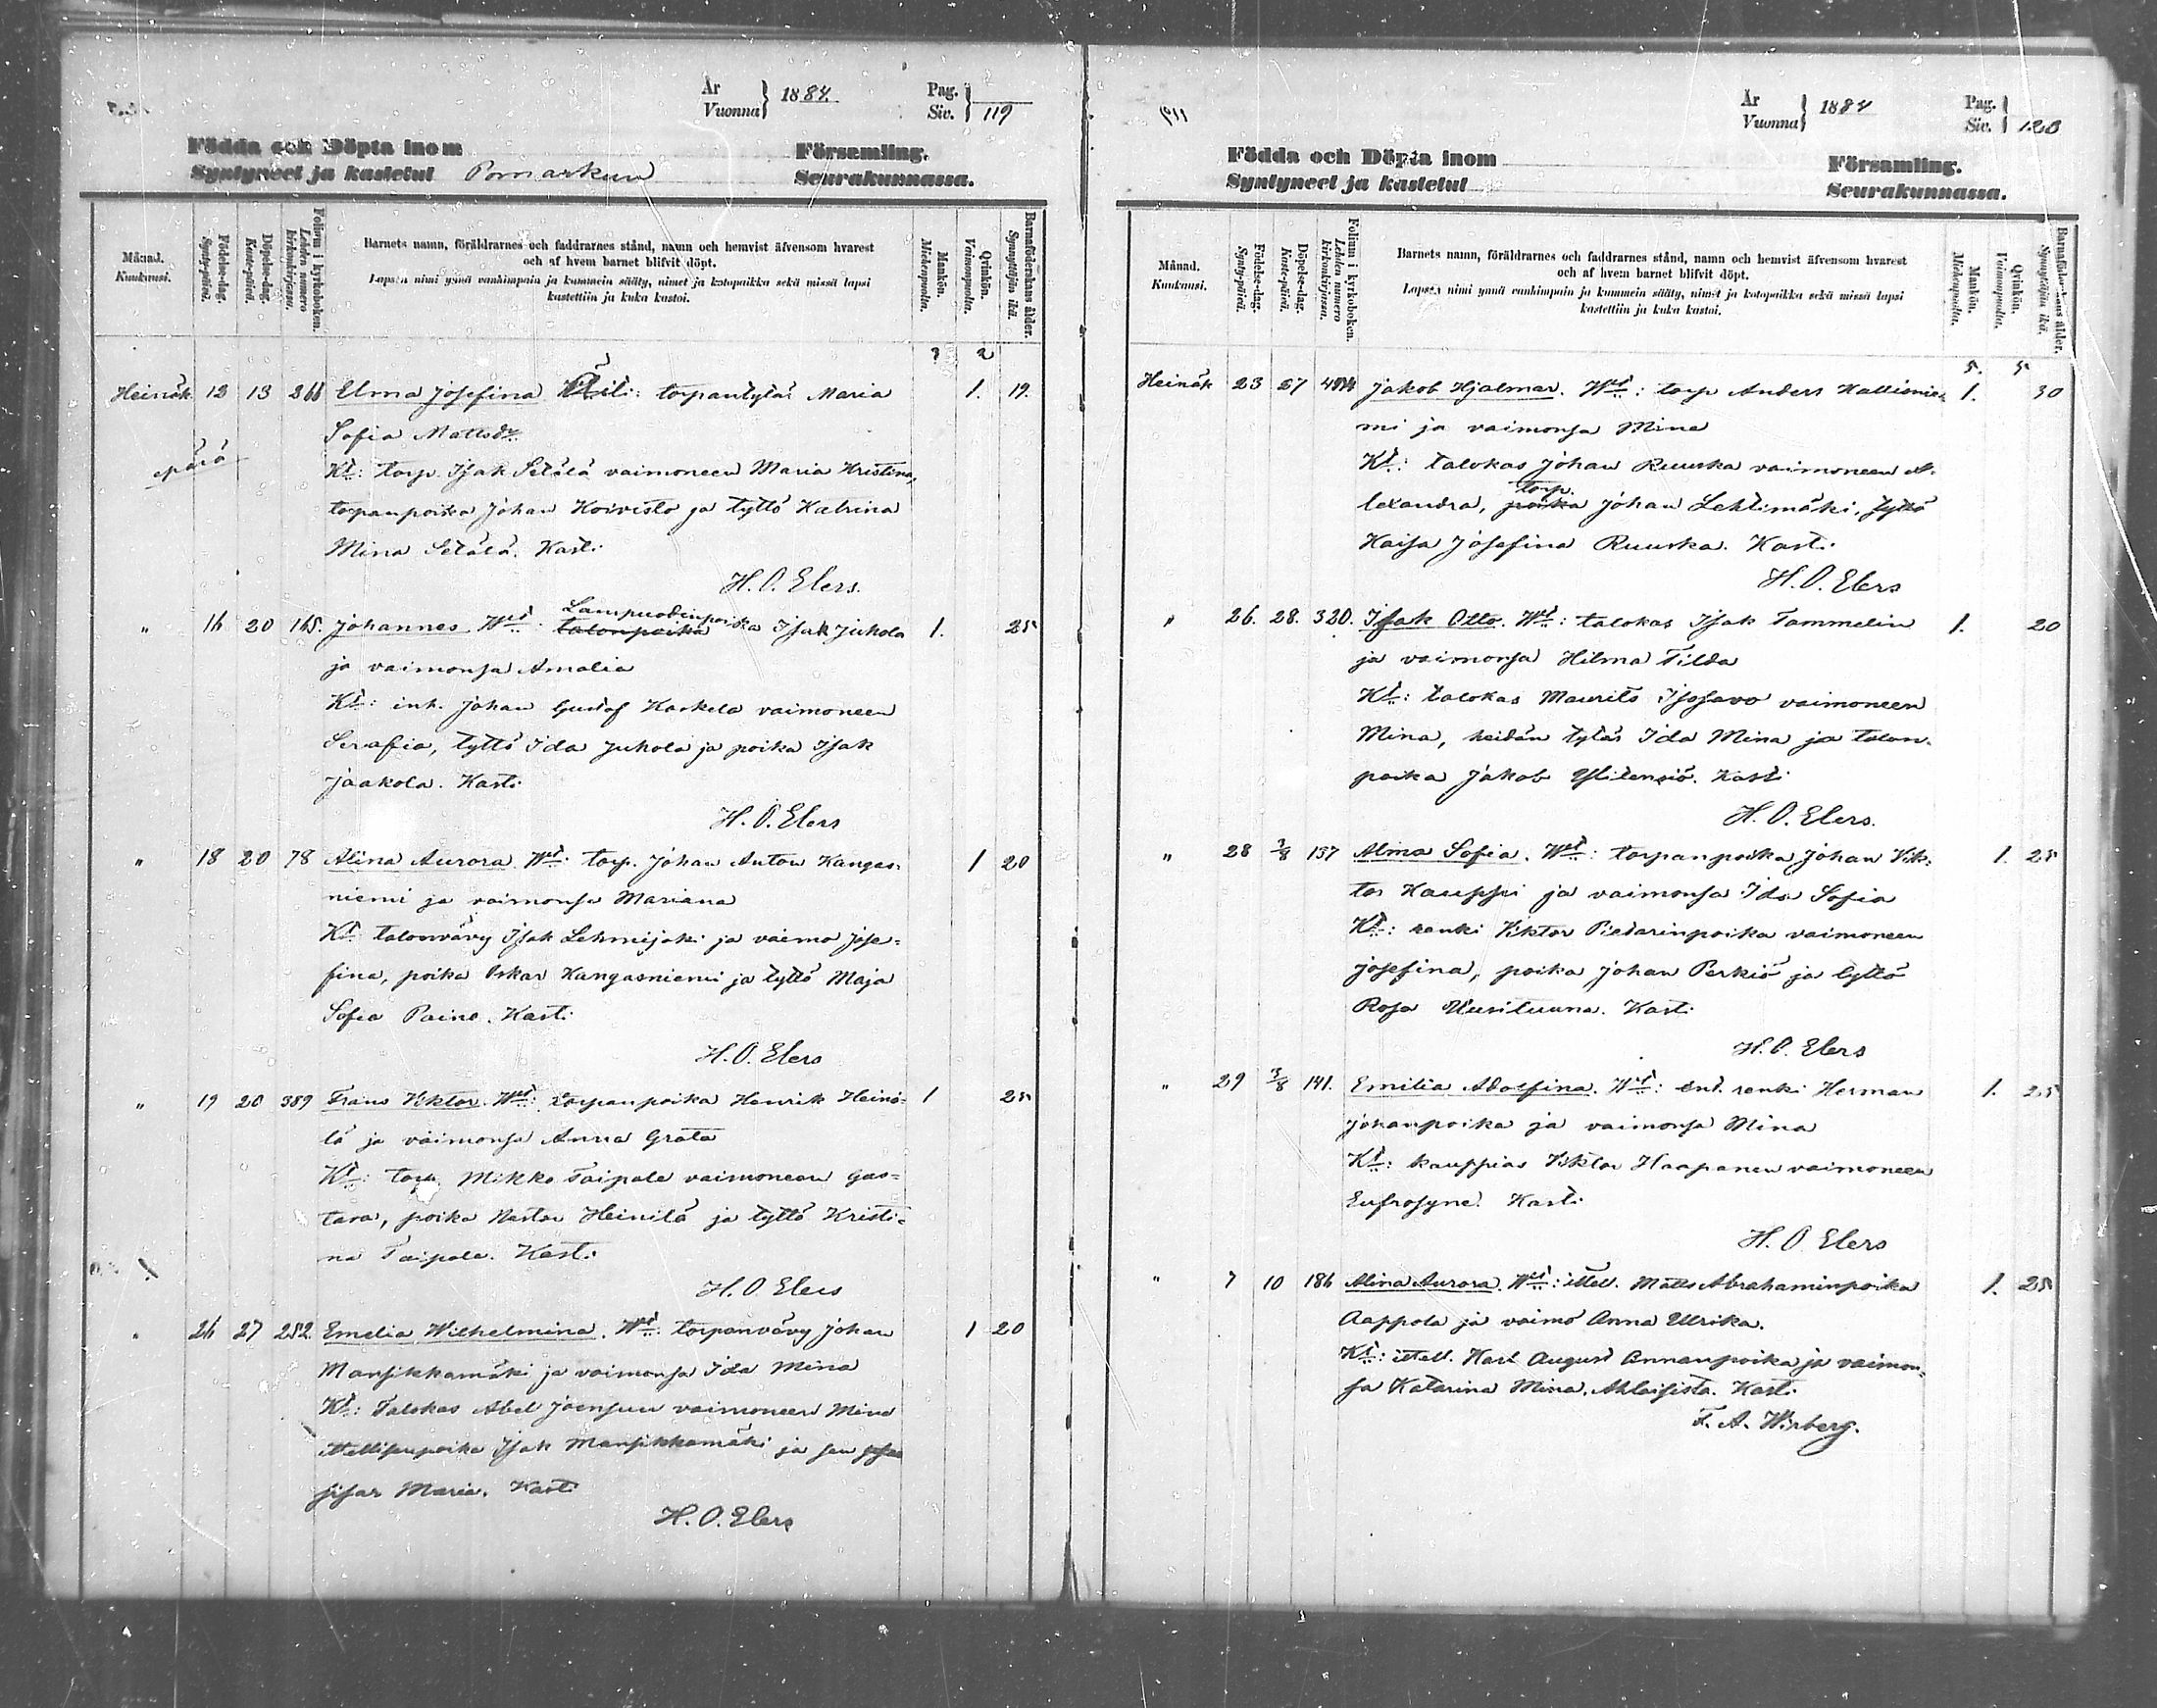 År
Vuonna } 1884.
Pag.
Siv. } 119
Födda och Döpta inom Församling.
Syntyneet ja kastetut Pomarkun Seurakunnassa.
Månad.
Kuukausi.
Födelse-dag.
Synty-päivä.
Döpelse-dag.
Kaste-päivä.
Folium i kyrkoboken.
Lehden numero
kirkonkirjassa.
Barnets namn, föräldrarnes och faddrarnes stånd, namn och hemvist äfvensom hvarest
och af hvem barnet blifvit döpt.
Lapsen nimi ynnä vanhimpain ja kummein sääty, nimet ja kotopaikka sekä missä lapsi
kastettiin ja kuka kastoi.
Mankön.
Miehenpuolta.
Qvinkön.
Vaimonpuolta.
Barnaföderskans ålder.
Synnyttäjän ikä.
2
Heinäk. 12 13 266 Elma Josefina Äiti: torpantytär Maria 1. 19.
Sofia Mattsdr.
epärä
Kt: torp. Isak Setälä vaimoneen Maria Kristina,
torpanpoika Johan Koivisto ja tyttö Katrina
Mina Setälä. Kast:
H. O. Elers.
" 16 20 165. Johannes Wet. talonpoika Lampuodinpoika Isak Juhola 1. 25
ja vaimonsa Amalia
Kt: inh. Johan Gustaf Koskela vaimoneen
Serafia, tyttö Ida Juhola ja poika Isak
Jaakola. Kast:
H. O. Elers
" 18 20 78 Alina Aurora Wet: torp. Johan Anton Kangas- 1 20
niemi ja vaimonsa Mariana
Kt talonvävy Isak Lehmijoki ja vaimo Jose-
fina, poika Oskar Kangasniemi ja tyttö Maja
Sofia Paino. Kast:
H. O. Elers
" 19 20 389 Frans Viktor. Wet: torpanpoika Henrik Heini- 1 25
lä ja vaimonsa Anna Grata
Kt: torp. Mikko Taipale vaimoneen Gus-
tava, poika Nestor Heinilä ja tyttö Kristi-
na Taipale. Kast:
H. O. Elers
" 26 27 252. Emelia Wilhelmina. Wet: torpanvävy Johan 1 20
Mansikkamäki ja vaimonsa Ida Mina
Kt: Talokas Abel Joensuu vaimoneen Mina
itellisenpoika Isak Mansikkamäki ja sen
sisar Maria. Kast:
H. O. Elers
År
Vuonna } 1884
Pag.
Siv. } 120
Födda och Döpta inom Församling.
Syntyneet ja kastetut Seurakunnassa.
Månad.
Kuukausi.
Födelse-dag.
Synty-päivä.
Döpelse-dag.
Kaste-päivä.
Folium i kyrkoboken.
Lehden numero
kirkonkirjassa.
Barnets namn, föräldrarnes och faddrarnes stånd, namn och hemvist äfvensom hvarest
och af hvem barnet blifvit döpt.
Lapsen nimi ynnä vanhimpain ja kummein sääty, nimet ja kotopaikka sekä missä lapsi
kastettiin ja kuka kastoi.
Mankön.
Miehenpuolta.
Qvinkön.
Vaimonpuolta.
Barnaföderskans ålder.
Synnyttäjän ikä.
5. 5
Heinäk 23 27 Jakob Hjalmar. Wet: torp Anders Kallionie- 1. 30
mi ja vaimonsa Mina
Kt: talokas Johan Ruuska vaimoneen A-
lexandra, poika torp. Johan Lehtimäki, tyttö
Kaisa Josefina Ruuska. Kast:
H. O. Elers
" 26. 28. 320. Isak Otto. Wet: talokas Isak Tammelin 1. 20
ja vaimonsa Hilma Tilda
Kt: talokas Maurits Isosavo vaimoneen
Mina, heidän tytär Ida Mina ja talon-
poika Jakob Ylitensiö. Kast:
H. O. Elers.
" 28 3/8 157 Alma Sofia. Wet: torpanpoika Johan Vik- 1. 25
tor Kauppi ja vaimonsa Ida Sofia
Kt: renki Viktor Pietarinpoika vaimoneen
Josefina, poika Johan Perkiö ja tyttö
Rosa Uusituuna. Kast:
H. O. Elers
" 29 3/8 141. Emilia Adolfina. Wet: ent. renki Herman 1. 25
Johanpoika ja vaimonsa Mina
Kt: kauppias Viktor Haapanen vaimoneen
Eufrosyne. Kast:
H. O. Elers
" 7 10 186 Alina Aurora. Wet: ittell. Matts Abrahaminpoika 1. 25
Aappola ja vaimo Anna Ulrika.
Kt: ittell. Karl August Annanpoika ja vaimon-
sa Katarina Mina. Ahlaisista. Kast:
F. A. Wirberg.